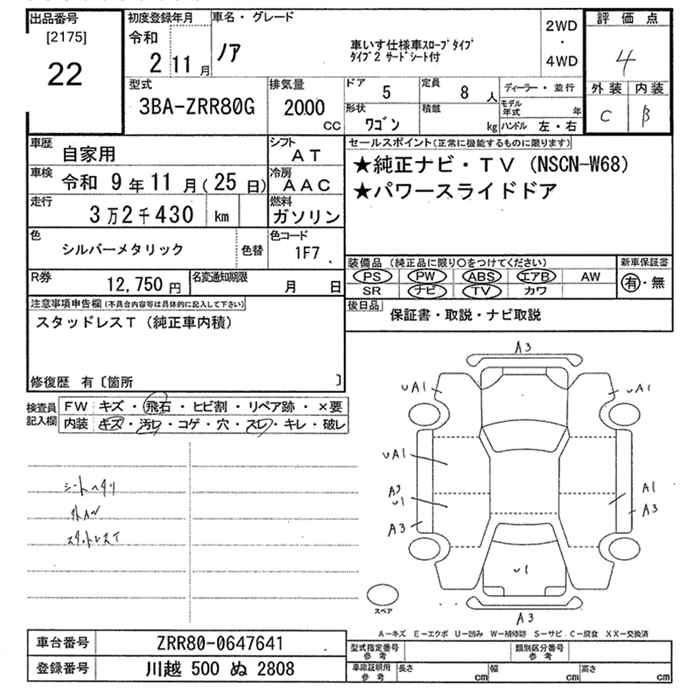 出品番号
[2175]
22
初度登録年月
令和
2 11 月
車名・グレード
ノア
車いす仕様車スロープタイプ
タイプ2 サードシート付
2WD
・
4WD
評価点
4
外装 内装
C B
型式
3BA-ZRR80G
排気量
2000
CC
ドア
5
定員
8 人
ディーラー・並行
モデル年式 年
ハンドル 左・右
形状
ワゴン
積載
kg
車歴
自家用
シフト
AT
車検
令和 9年 11 月(25 日)
冷房
AAC
走行
3万2千430 km
燃料
ガソリン
色
シルバーメタリック
色替
色コード
1F7
R券
12,750 円
名変通知期限
月 日
セールスポイント(正常に機能するものに限ります)
★純正ナビ・TV (NSCN-W68)
★パワースライドドア
装備品(純正品に限り〇をつけてください)
PS PW ABS エアB AW
SR ナビ TV カワ
新車保証書
有・無
後日品
保証書・取説・ナビ取説
注意事項申告欄(不具合内容等は具体的に記入して下さい)
スタッドレスT (純正車内積)
修復歴 有〔箇所 〕
検査員
記入欄
FW キズ・飛石・ヒビ割・リペア跡・×要
内装 キズ・汚レ・コゲ・穴・スレ・キレ・破レ
シートヘタリ
スタットレスT
A3
uA1
uA1
uA1
A3
u1
A3
A1
A3
u1
A3
スペア
A-キズ E-エクボ U-凹み W-補修跡 S-サビ C-腐食 XX-交換済
車台番号
ZRR80-0647641
登録番号
川越 500 ぬ 2808
型式指定番号
参考
類別区分番号
参考
車庫証明用
参考
長さ cm
幅 cm
高さ cm